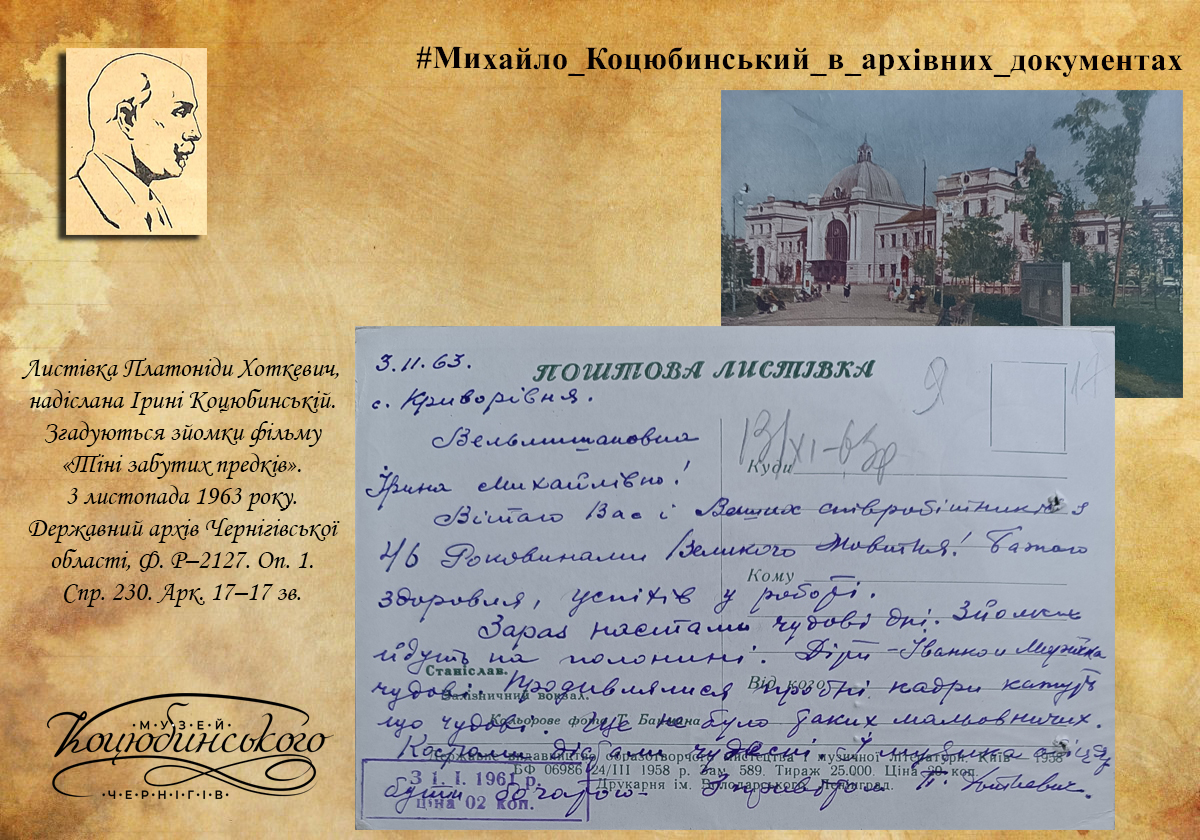 #Михайло_Коцюбинський_в_архівних_документах
Листівка Платоніди Хоткевич,
надіслана Ірині Коцюбинській.
Згадуються зйомки фільму
«Тіні забутих предків».
3 листопада 1963 року.
Державний архів Чернігівської
області, Ф. Р–2127. Оп. 1.
Спр. 230. Арк. 17–17 зв.
МУЗЕЙ
Коцюбинського
ЧЕРНІГІВ
ПОШТОВА ЛИСТІВКА
3.11.63.
с. Криворівня.
Вельмишановна
Ірина Михайлівно!
Вітаю Вас і Ваших співробітників з
46 Роковинами Великого Жовтня! Бажаю
здоровля, успіхів у роботі.
Зараз настали чудові дні. Зйомки
йдуть на полонині. Діти - Іванко и Марічка
чудові. Продивлялися пробні кадри кажуть
що чудові. Ще не було таких мальовничих.
П. Хоткевич.
13/XI-63р
17
Куди
Кому
Від кого
Станіслав.
Залізничний вокзал.
Кольорове фото Т. Бармана
Державне видавництво образотворчого мистецтва і музичної літератури. Київ 1958
БФ 06986 24/III 1958 р. Зам. 589. Тираж 25.000. Ціна 20 коп.
Друкарня ім. Володарського. Ленінград.
З 1. I. 1961 р.
ціна 02 коп.